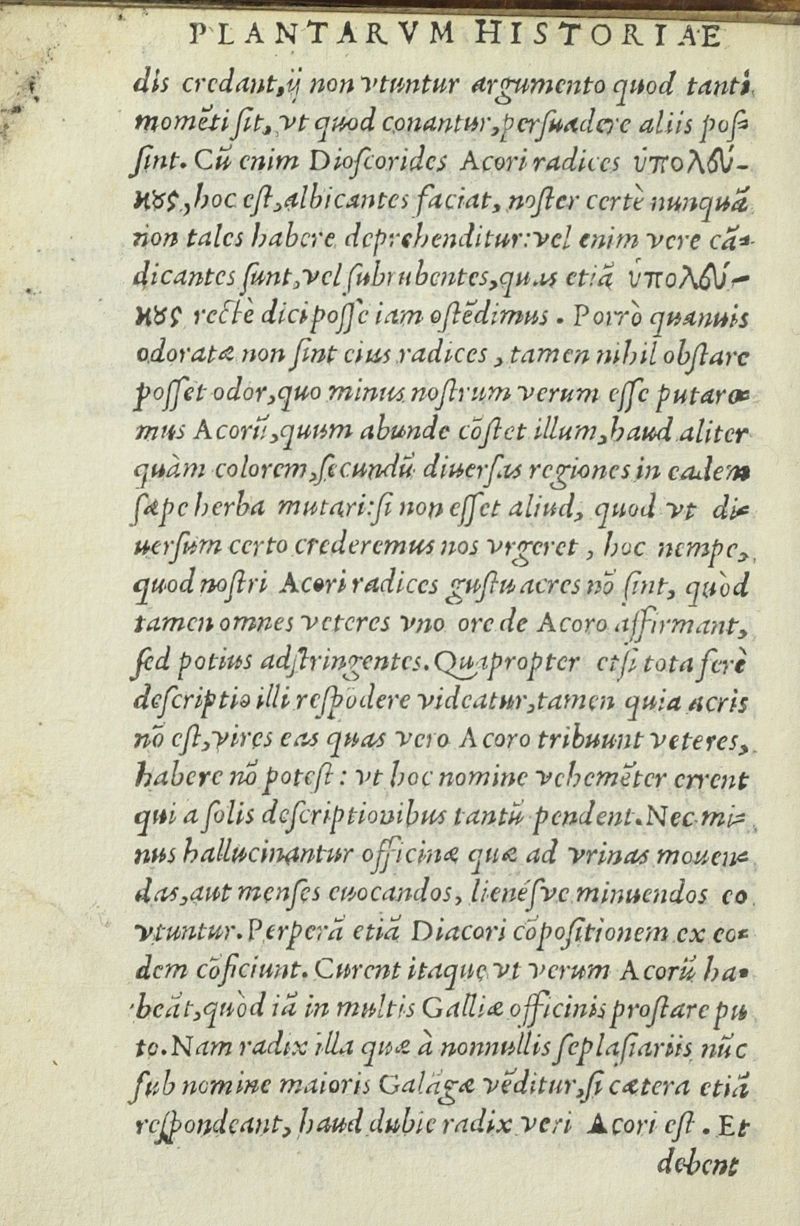 PLANTARVM HISTORIAE
dis credant, ij non vtuntur argumento quod tanti
momẽti sit, vt quod conantur, persuadere aliis pos-
sint. Cũ enim Dioscorides Acori radices ὑπολεύ-
κους, hoc est, albicantes faciat, noster certè nunquã
non tales habere deprehenditur: vel enim vere cã-
dicantes sunt, vel subrubentes, quas etiã ὑπολεύ-
κους rectè dici posse iam ostẽdimus. Porrò quanuis
odoratæ non sint eius radices, tamen nihil obstare
posset odor, quo minus nostrum verum esse putare-
mus Acorũ, quum abunde cõstet illum, haud aliter
quàm colorem, secundũ diuersas regiones in eadem
sæpe herba mutari: si non esset aliud, quod vt di-
uersum certo crederemus nos vrgeret, hoc nempe,
quod nostri Acori radices gustu acres nõ sint, quòd
tamen omnes veteres vno ore de Acoro affirmant,
sed potius adstringentes. Quapropter etsi tota ferè
descriptio illi respõdere videatur, tamen quia acris
nõ est, vires eas quas vero Acoro tribuunt veteres,
habere nõ potest: vt hoc nomine vehemẽter errent
qui a solis descriptionibus tantũ pendent. Nec mi-
nus hallucinantur officinæ quæ ad vrinas mouen-
das, aut menses euocandos, lienésve minuendos eo
vtuntur. Perperã etiã Diacori cõpositionem ex eo-
dem cõficiunt. Curent itaque vt verum Acorũ ha-
beãt, quòd iã in multis Galliæ officinis prostare pu
to. Nam radix illa quæ à nonnullis seplasiariis nũc
sub nomine maioris Galãgæ vẽditur, si cætera etiã
respondeant, haud dubie radix veri Acori est. Et
debent